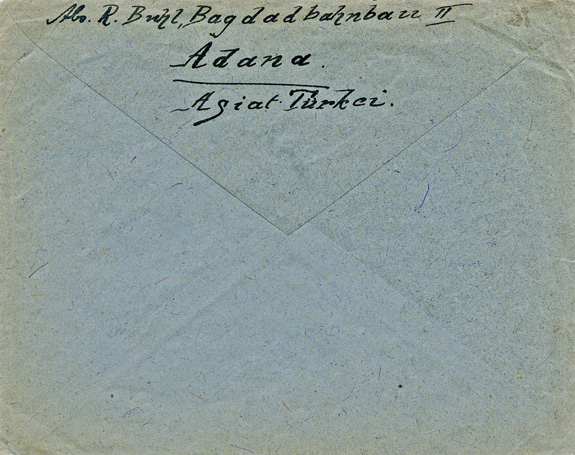 Abs. R. Buhl, Bagdadbahnbau II
Adana.
Asiat. Türkei.